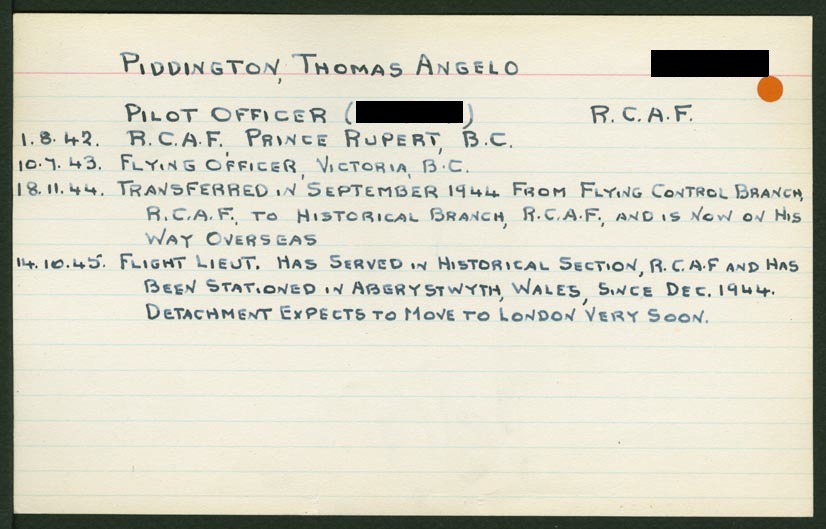 PIDDINGTON, THOMAS ANGELO
PILOT OFFICER ( ) R.C.A.F.
1.8.42. R.C.A.F. PRINCE RUPERT, B.C.
10.7.43. FLYING OFFICER, VICTORIA, B.C.
18.11.44. TRANSFERRED IN SEPTEMBER 1944 FROM FLYING CONTROL BRANCH,
R.C.A.F., TO HISTORICAL BRANCH, R.C.A.F., AND IS NOW ON HIS
WAY OVERSEAS
14.10.45. FLIGHT LIEUT. HAS SERVED IN HISTORICAL SECTION, R.C.A.F AND HAS
BEEN STATIONED IN ABERYSTWYTH, WALES, SINCE DEC. 1944.
DETACHMENT EXPECTS TO MOVE TO LONDON VERY SOON.